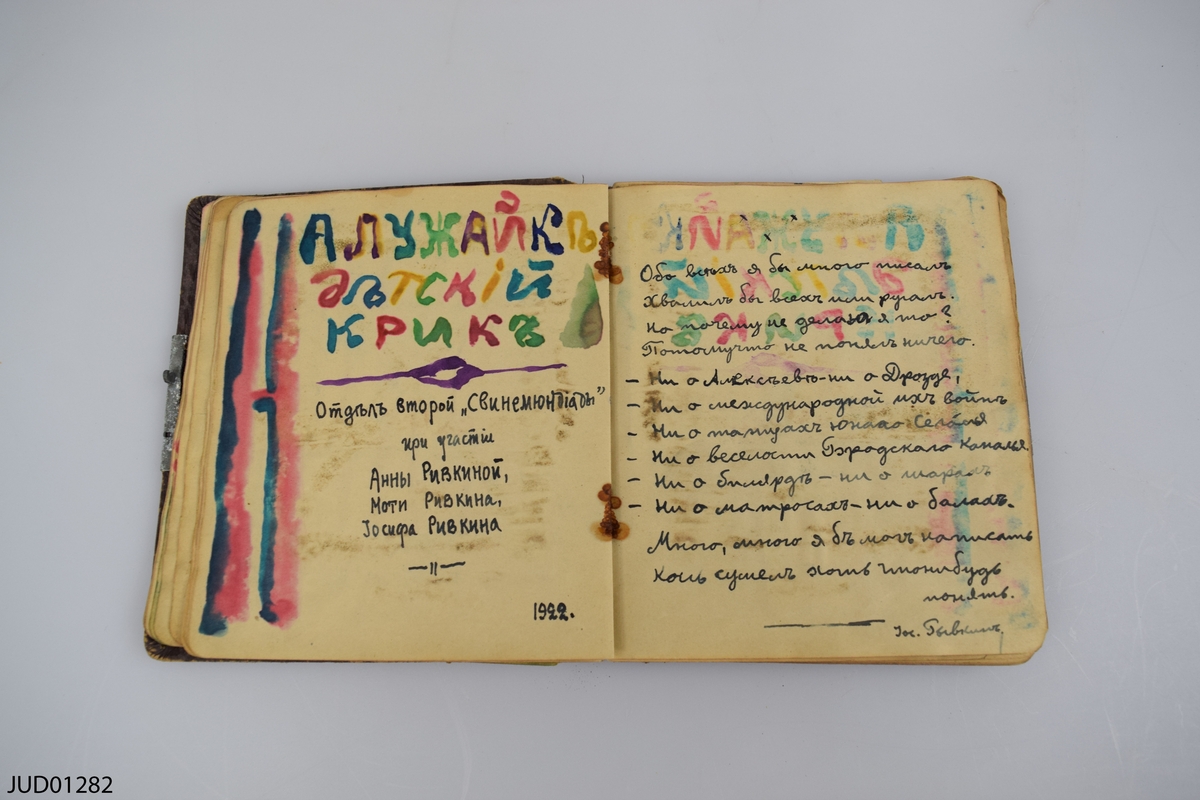 АЛУЖАЙКЪ
ДѢТСКІЙ
КРИКЪ
Отдѣлъ второй „Свинемюндіады”
при участіи
Анны Ривкиной,
Моти Ривкина,
Іосифа Ривкина
—"—
1922.
Обо всѣхъ я бы много писалъ
Хвалилъ бы всехъ или ругалъ.
Но почему не делаю я то?
Потомучто не понялъ ничего.
– Ни о Алексѣевѣ-ни о Дроздѣ,
– Ни о международной ихъ войнѣ
– Ни о танцахъ юнаго
– Ни о веселости Бродскаго Каналья
– Ни о билярдѣ – ни о шарахъ
– Ни о матросахъ – ни о балахъ.
Много, много я бъ могъ написать
Коль сумелъ хоть чтонибудь
понять.
Іос. Рывкинъ.
JUD01282